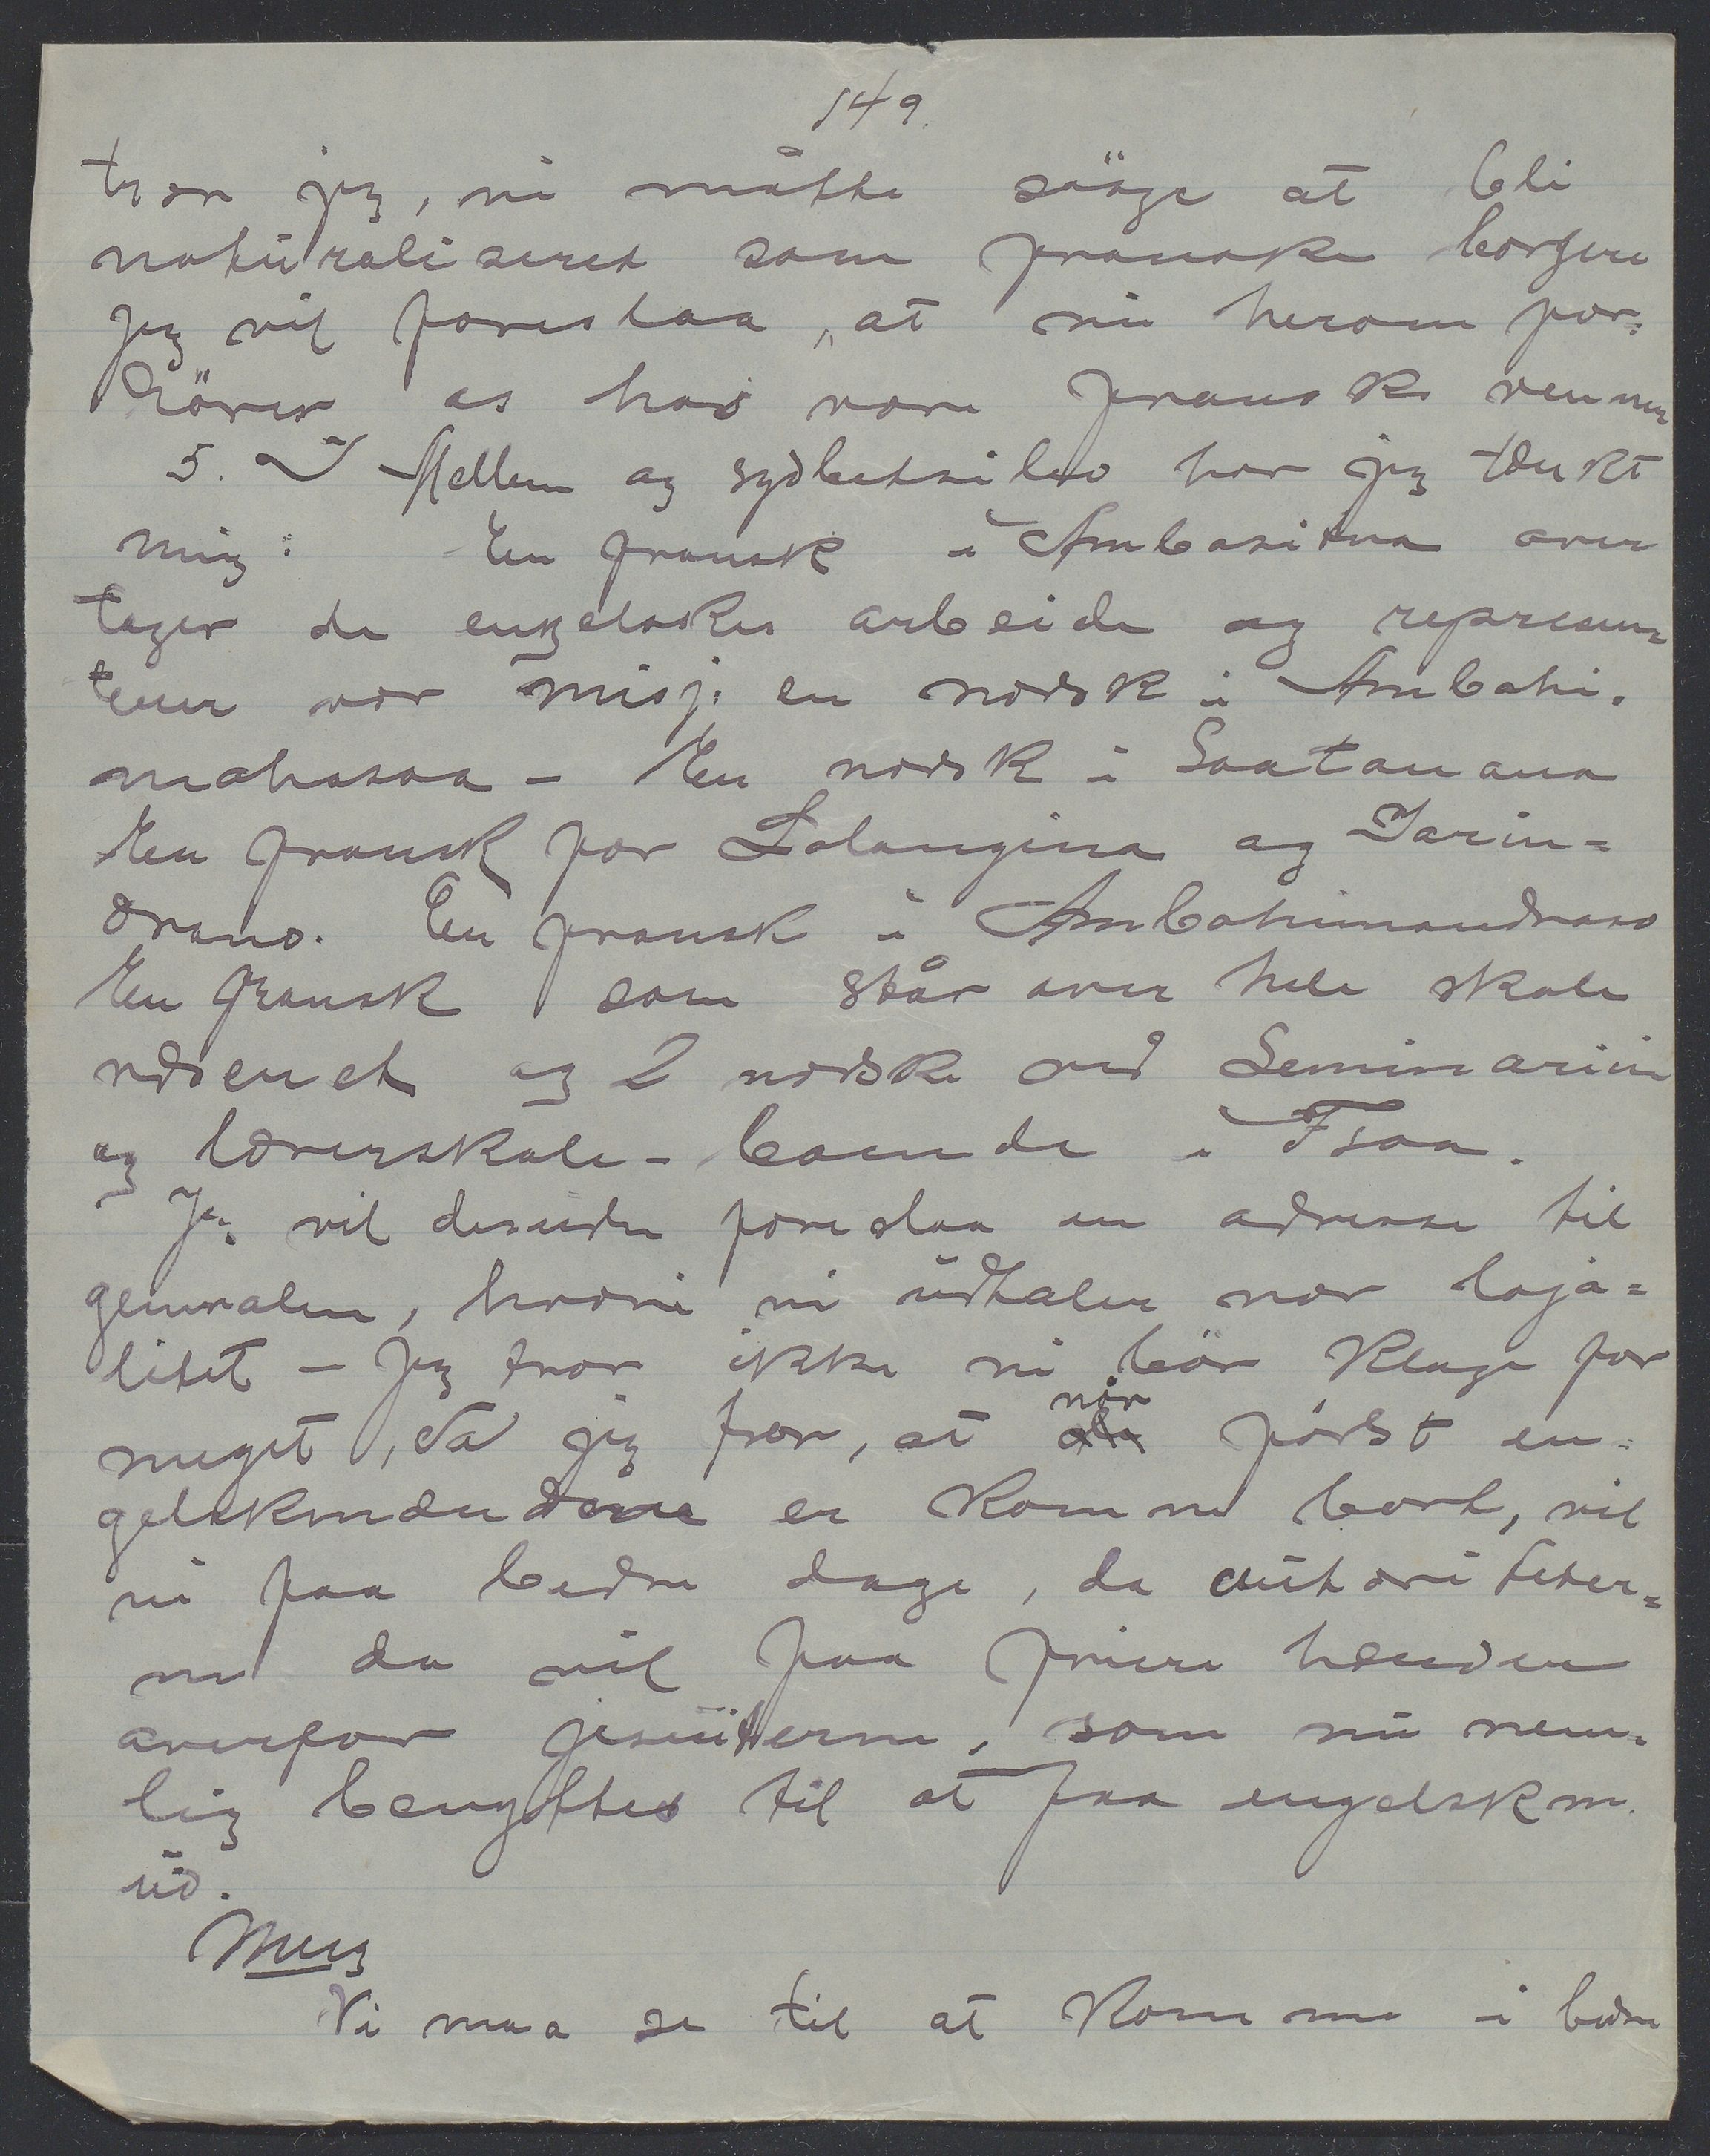 149.
tror jeg, vi måtte söge at bli
naturaliseret som franske borgere
Jeg vil foreslaa, at vi herom for=
hörer os hos vore franske venner
5. I Mellem og sydbetsileo har jeg tænkt
mig: En fransk i Ambositra over
tager de engelskes arbeide og represen
terer vor misj: en norsk i Ambohi.
mahasoa - En norsk i Soatanana
En fransk for Lalangina og Iarin=
drano. En fransk i Ambohimandroso
En fransk som står over hele skole
væsenet og 2 norske ved Seminariu
og lærerskole - boende i Fsoa.
Jeg vil desuden foreslaa en adresse til
generalen, hvori vi udtaler vor loja=
litet - Jeg tror ikke vi bör klage for
meget, da jeg tror, at når först en=
gelskmændene er komne bort, vil
vi faa bedre dage, da autoriteter=
ne da vil faa friere hænder
overfor jesuitterne, som nu nem=
lig benyttes til at faa engelskm.
ud.
Meeg
Vi maa se til at komme i bedre